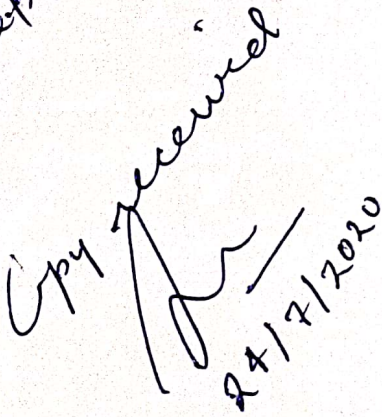 Copy received
24/7/2020